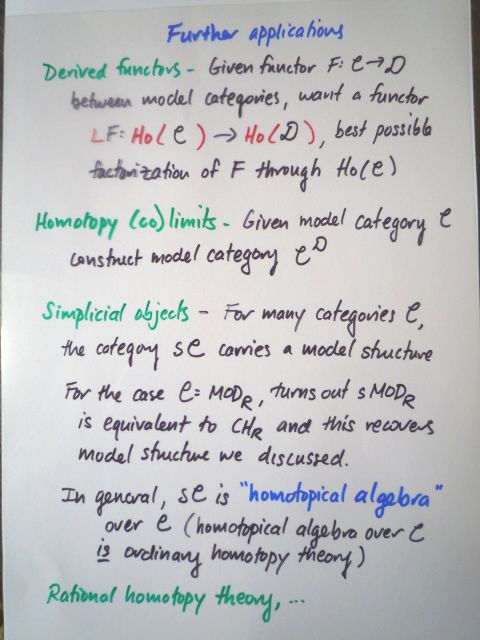 Further applications
Derived functors - Given functor F: C → D
between model categories, want a functor
LF: Ho(C) → Ho(D), best possible
factorization of F through Ho(C)
Homotopy (co)limits - Given model category C
construct model category C^D
Simplicial objects - For many categories C,
the category sC carries a model structure
For the case C = MOD_R, turns out sMOD_R
is equivalent to CH_R and this recovers
model structure we discussed.
In general, sC is "homotopical algebra"
over C (homotopical algebra over C
is ordinary homotopy theory)
Rational homotopy theory, ...